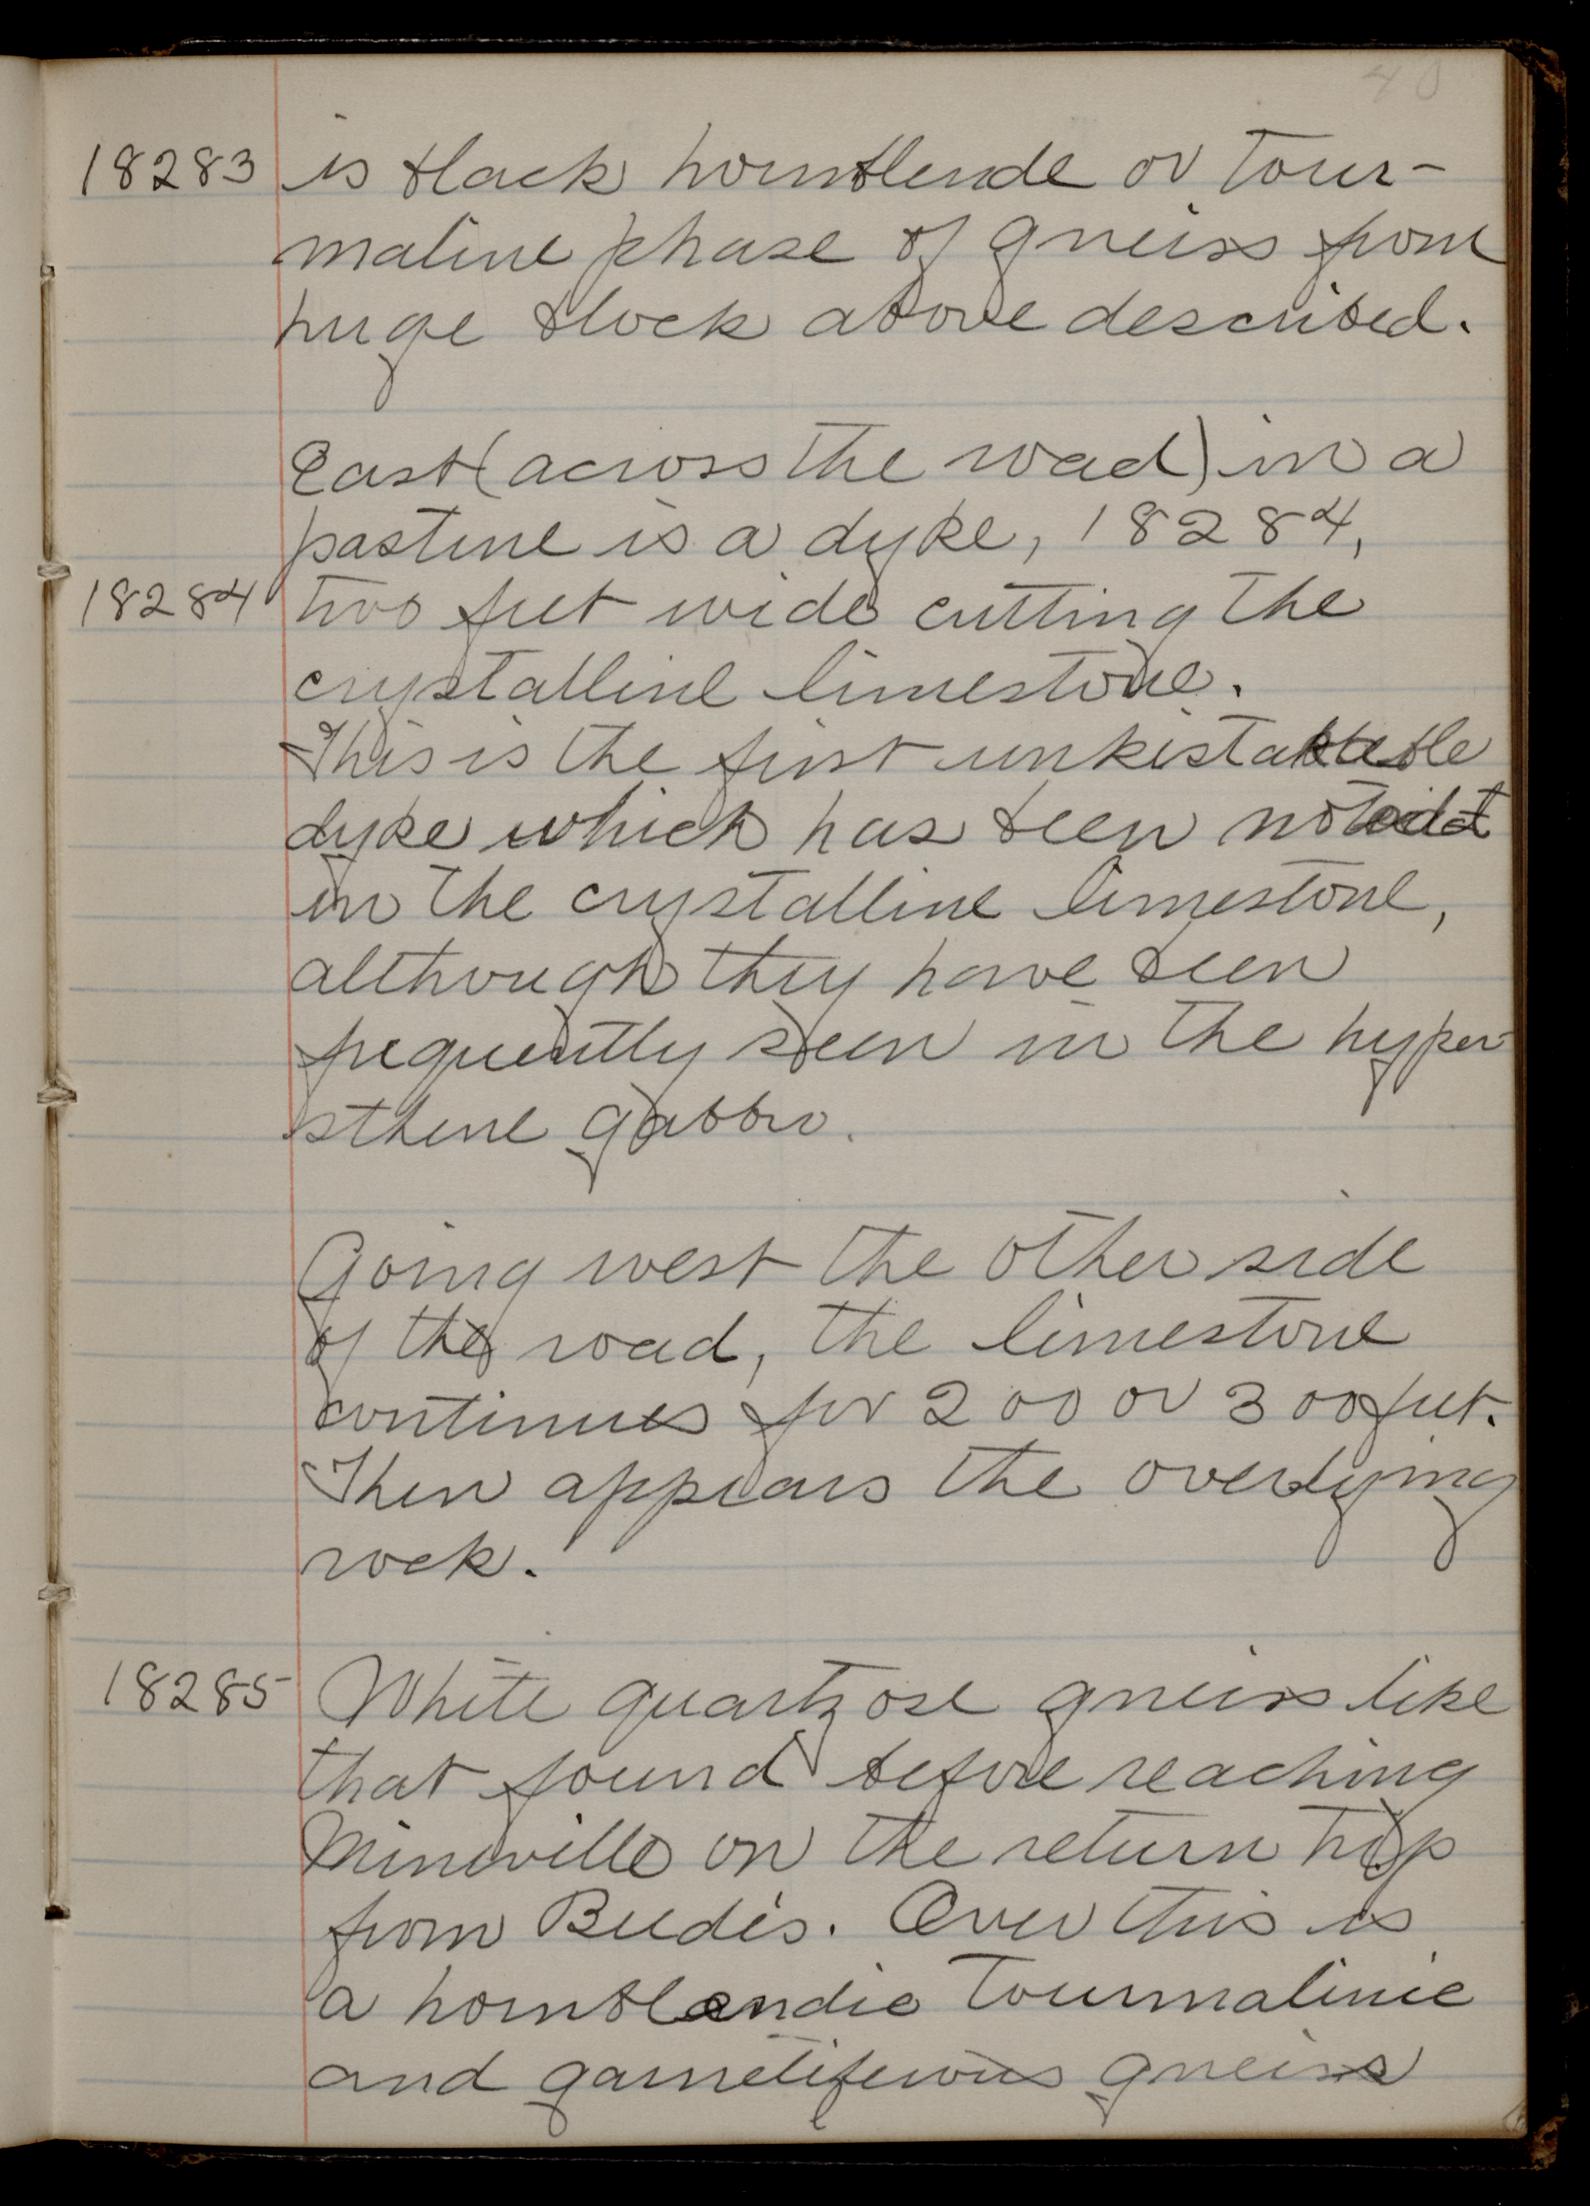 40
18283 is black hornblende or tour-
maline phase of gneiss from
huge block above described.
East (across the road) in a
pasture is a dyke, 18284,
18284 two feet wide cutting the
crystalline limestone.
This is the first unkistakable
dyke which has been noted
in the crystalline limestone,
although they have been
frequently seen in the hyper-
sthene gabbro.
Going west the other side
of the road, the limestone
continues for 200 or 300 feet.
Then appears the overlying
rock.
18285 White quartzose gneiss like
that found before reaching
Mineville on the return trip
from Beede's. Over this is
a hornblendic tourmalinic
and garnetiferous gneiss